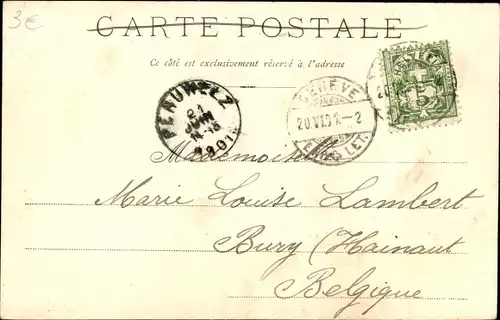 3€
CARTE POSTALE
Ce côté est exclusivement réservé à l'adresse
PERUWELZ
21
JUIN
1901
GENÈVE
20.VI.01.-2
EXP. LET.
HELVETIA
Mademoiselle
Marie Louise Lambert
Bury (Hainaut
Belgique